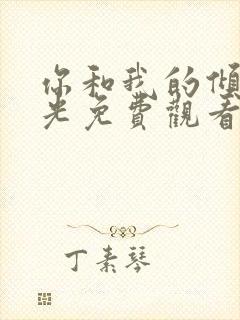 你和我的傾
光免費觀看
丁素琴